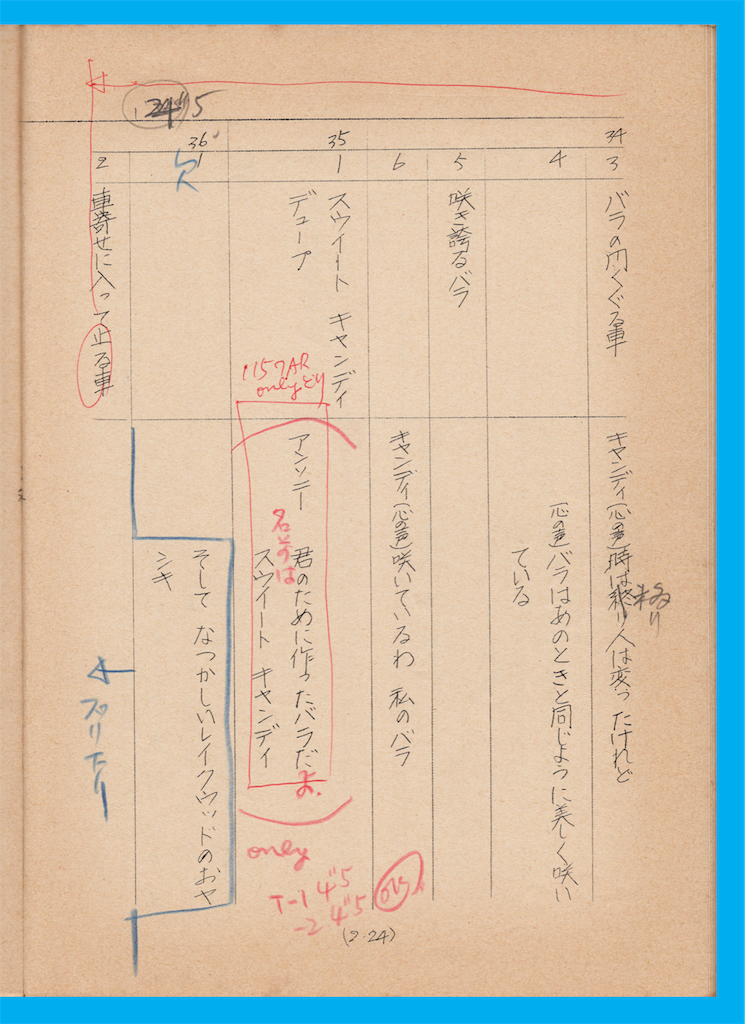 34
3
バラの門くぐる車
キャンディ(心の声)時は終り人は変ったけれど
移り
4
(心の声)バラはあのときと同じように美しく咲い
ている
5
咲き誇るバラ
6
キャンディ(心の声)咲いているわ 私のバラ
35
1
スウイート キャンディ
デュープ
アンソニー 君のために作ったバラだ
よ。
名前は
スウイート キャンディ
only
only
T-1 4"5
-2 4"5
36
1
欠
そして なつかしいレイクウッドのおヤ
シキ
2
車寄せに入って止る車
24"5
(2-24)